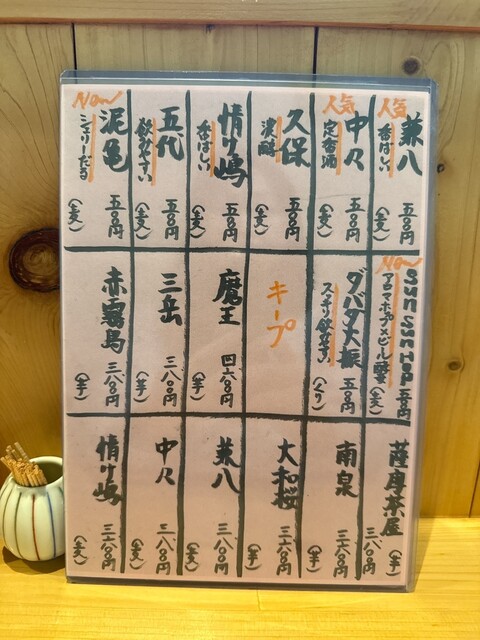 人気
兼八
香ばしい
五〇〇円
(麦)
人気
中々
定番酒
五〇〇円
(麦)
久保
濃醇
五〇〇円
(麦)
情け嶋
香ばしい
五〇〇円
(麦)
五代
飲みやすい
五〇〇円
(麦)
New
泥亀
シェリーだる
五〇〇円
(麦)
New
アロマホップ×ビール酵母
五〇〇円
(麦)
ダバダ火振
スッキリ飲みやすい
五〇〇円
(くり)
キープ
魔王
四六〇〇円
(芋)
三岳
三八〇〇円
(芋)
赤霧島
三八〇〇円
(芋)
薩摩茶屋
三八〇〇円
(芋)
南泉
三六〇〇円
(芋)
大和桜
三六〇〇円
(芋)
兼八
三八〇〇円
(麦)
中々
三八〇〇円
(麦)
情け嶋
三六〇〇円
(麦)